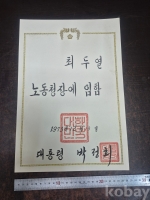 최두열
노동청장에 임함
대통령 박정희
kobay